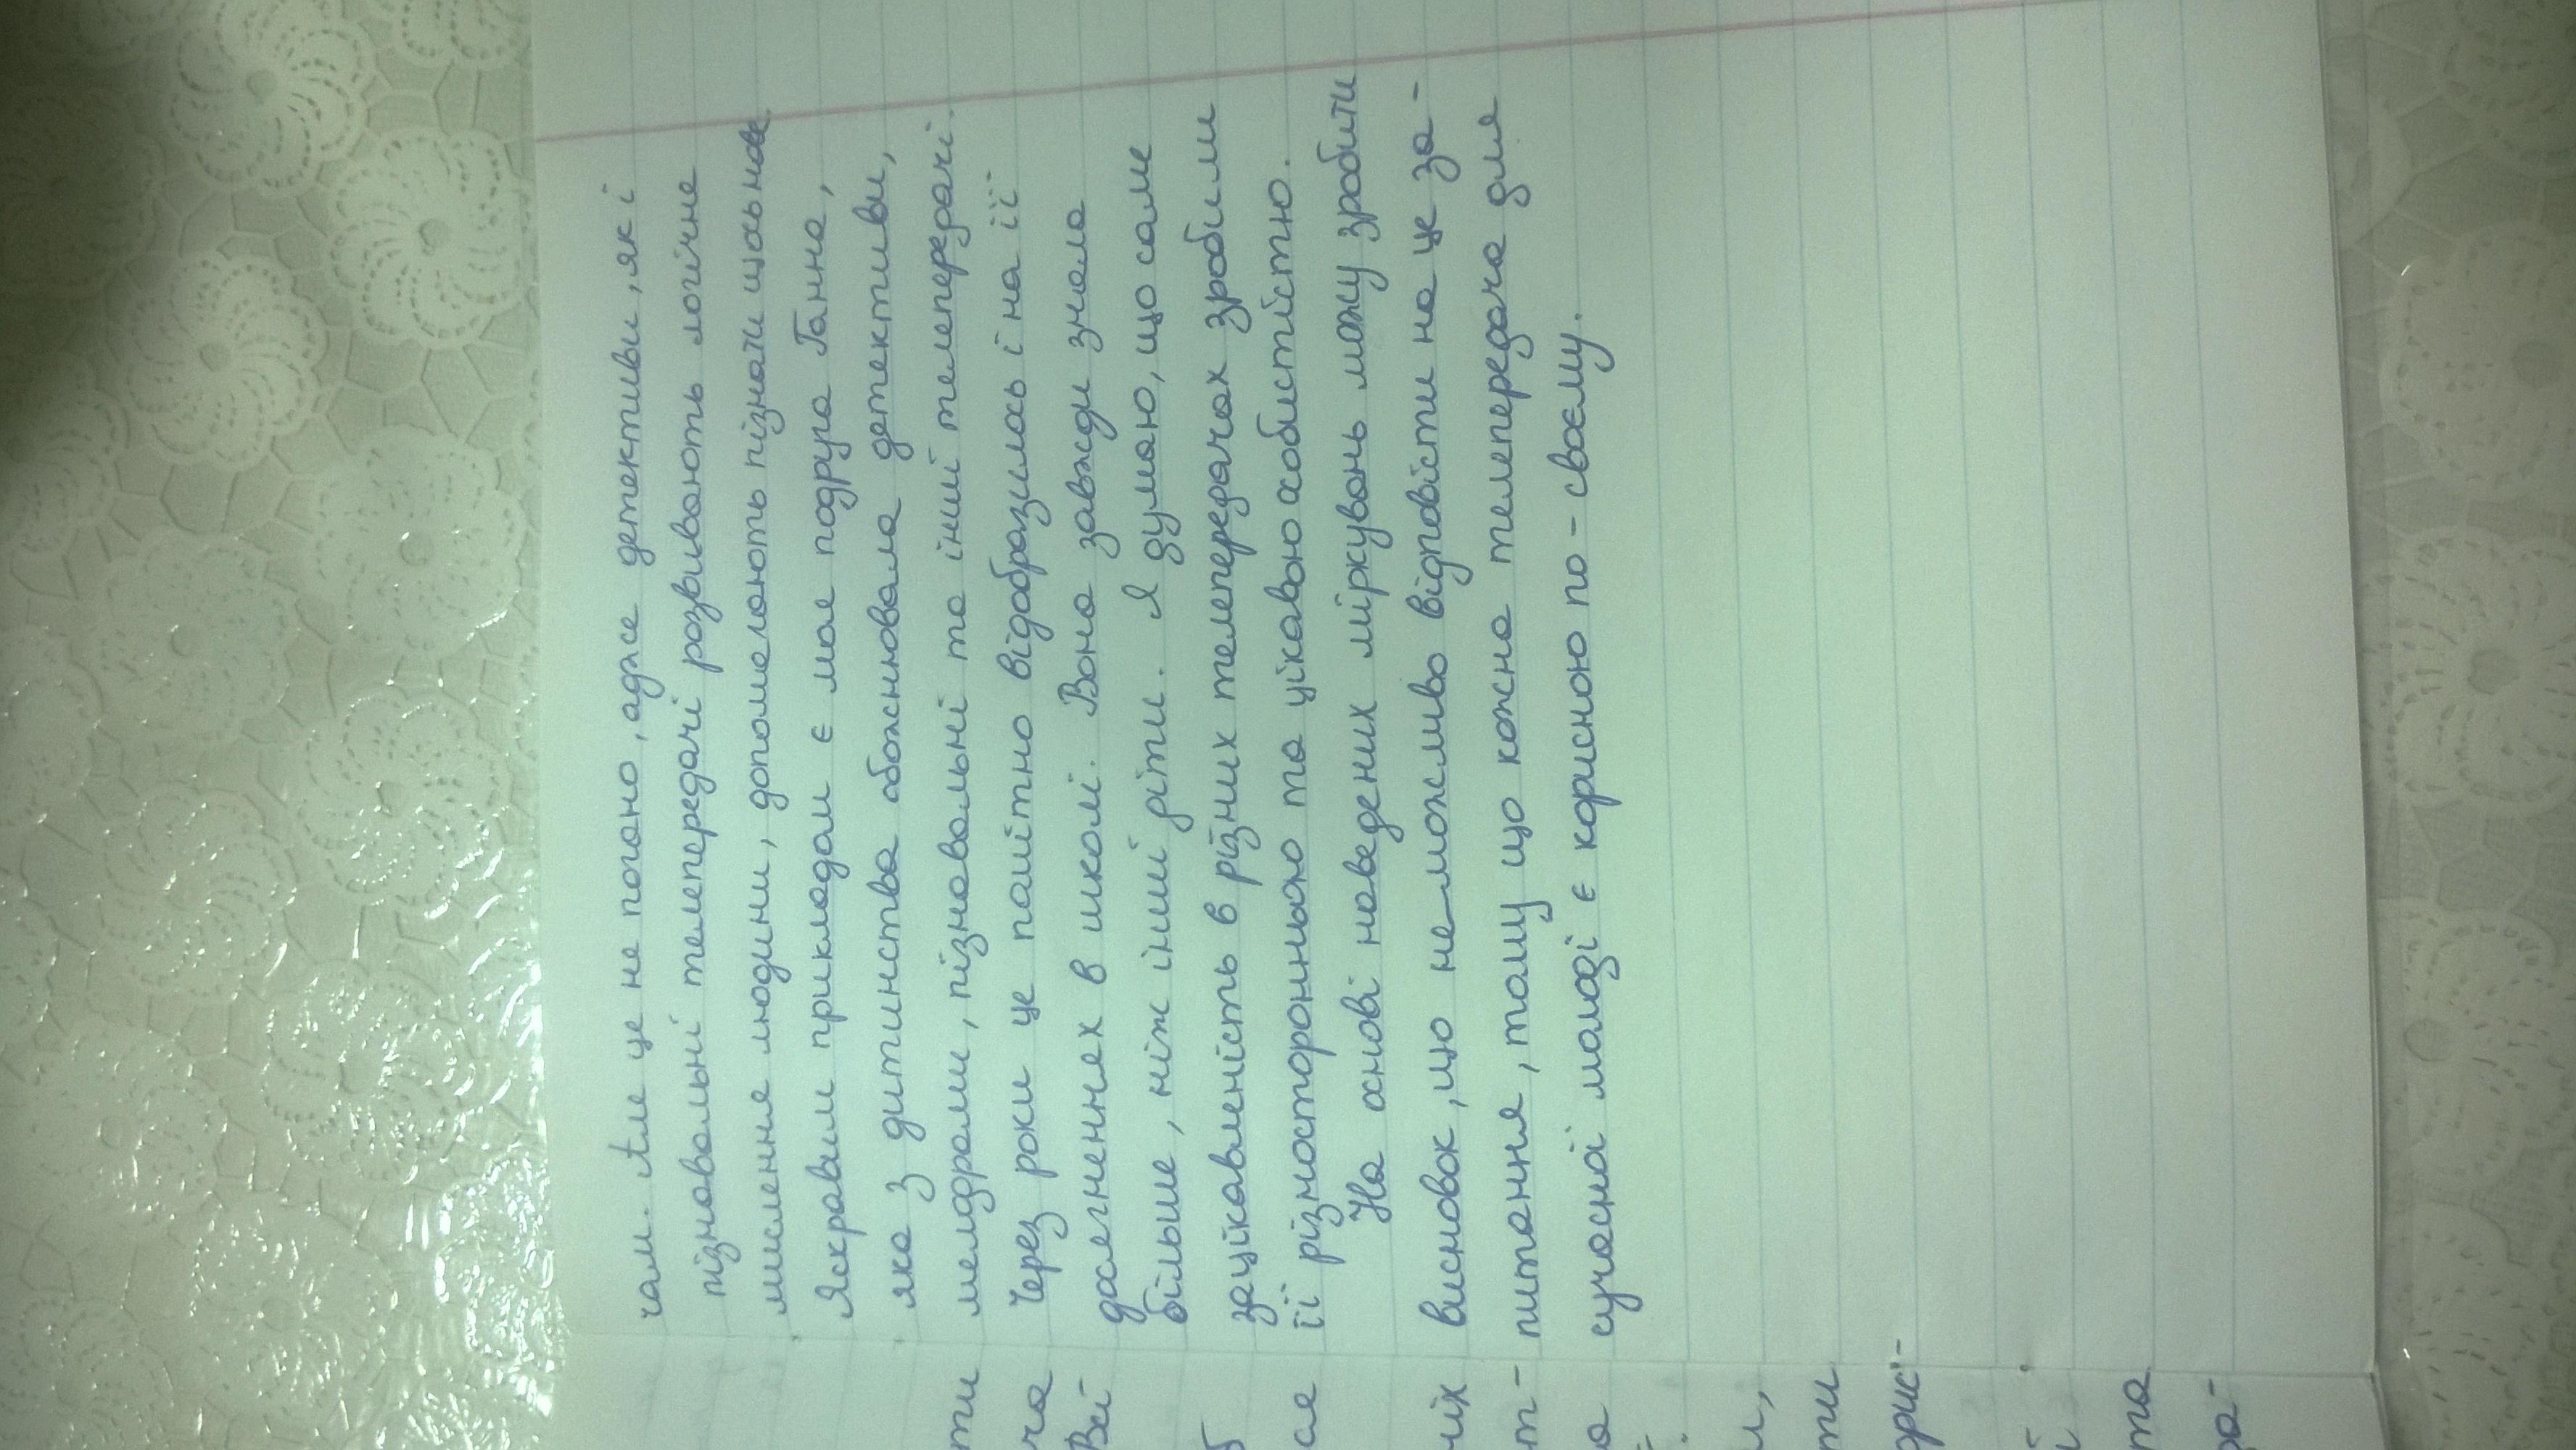 чам. Але це не погано, адже детективи, як і
пізнавальні телепередачі розвивають логічне
мислення людини, допомагають пізнати щось нове.
Яскравим прикладом є моя подруга Ганна,
яка з дитинства обожнювала детективи,
мелодрами, пізнавальні та інші телепередачі.
Через роки це помітно відобразилось і на її
досягненнях в школі. Вона завжди знала
більше, ніж інші діти. Я думаю, що саме
зацікавленість в різних телепередачах зробили
її різносторонньою та цікавою особистістю.
На основі наведених міркувань можу зробити
висновок, що не можливо відповісти на це за-
питання, тому що кожна телепередача для
сучасної молоді є корисною по-своєму.
ти
ча
Всі
б
ся
них
т-
а
и,
ти
та